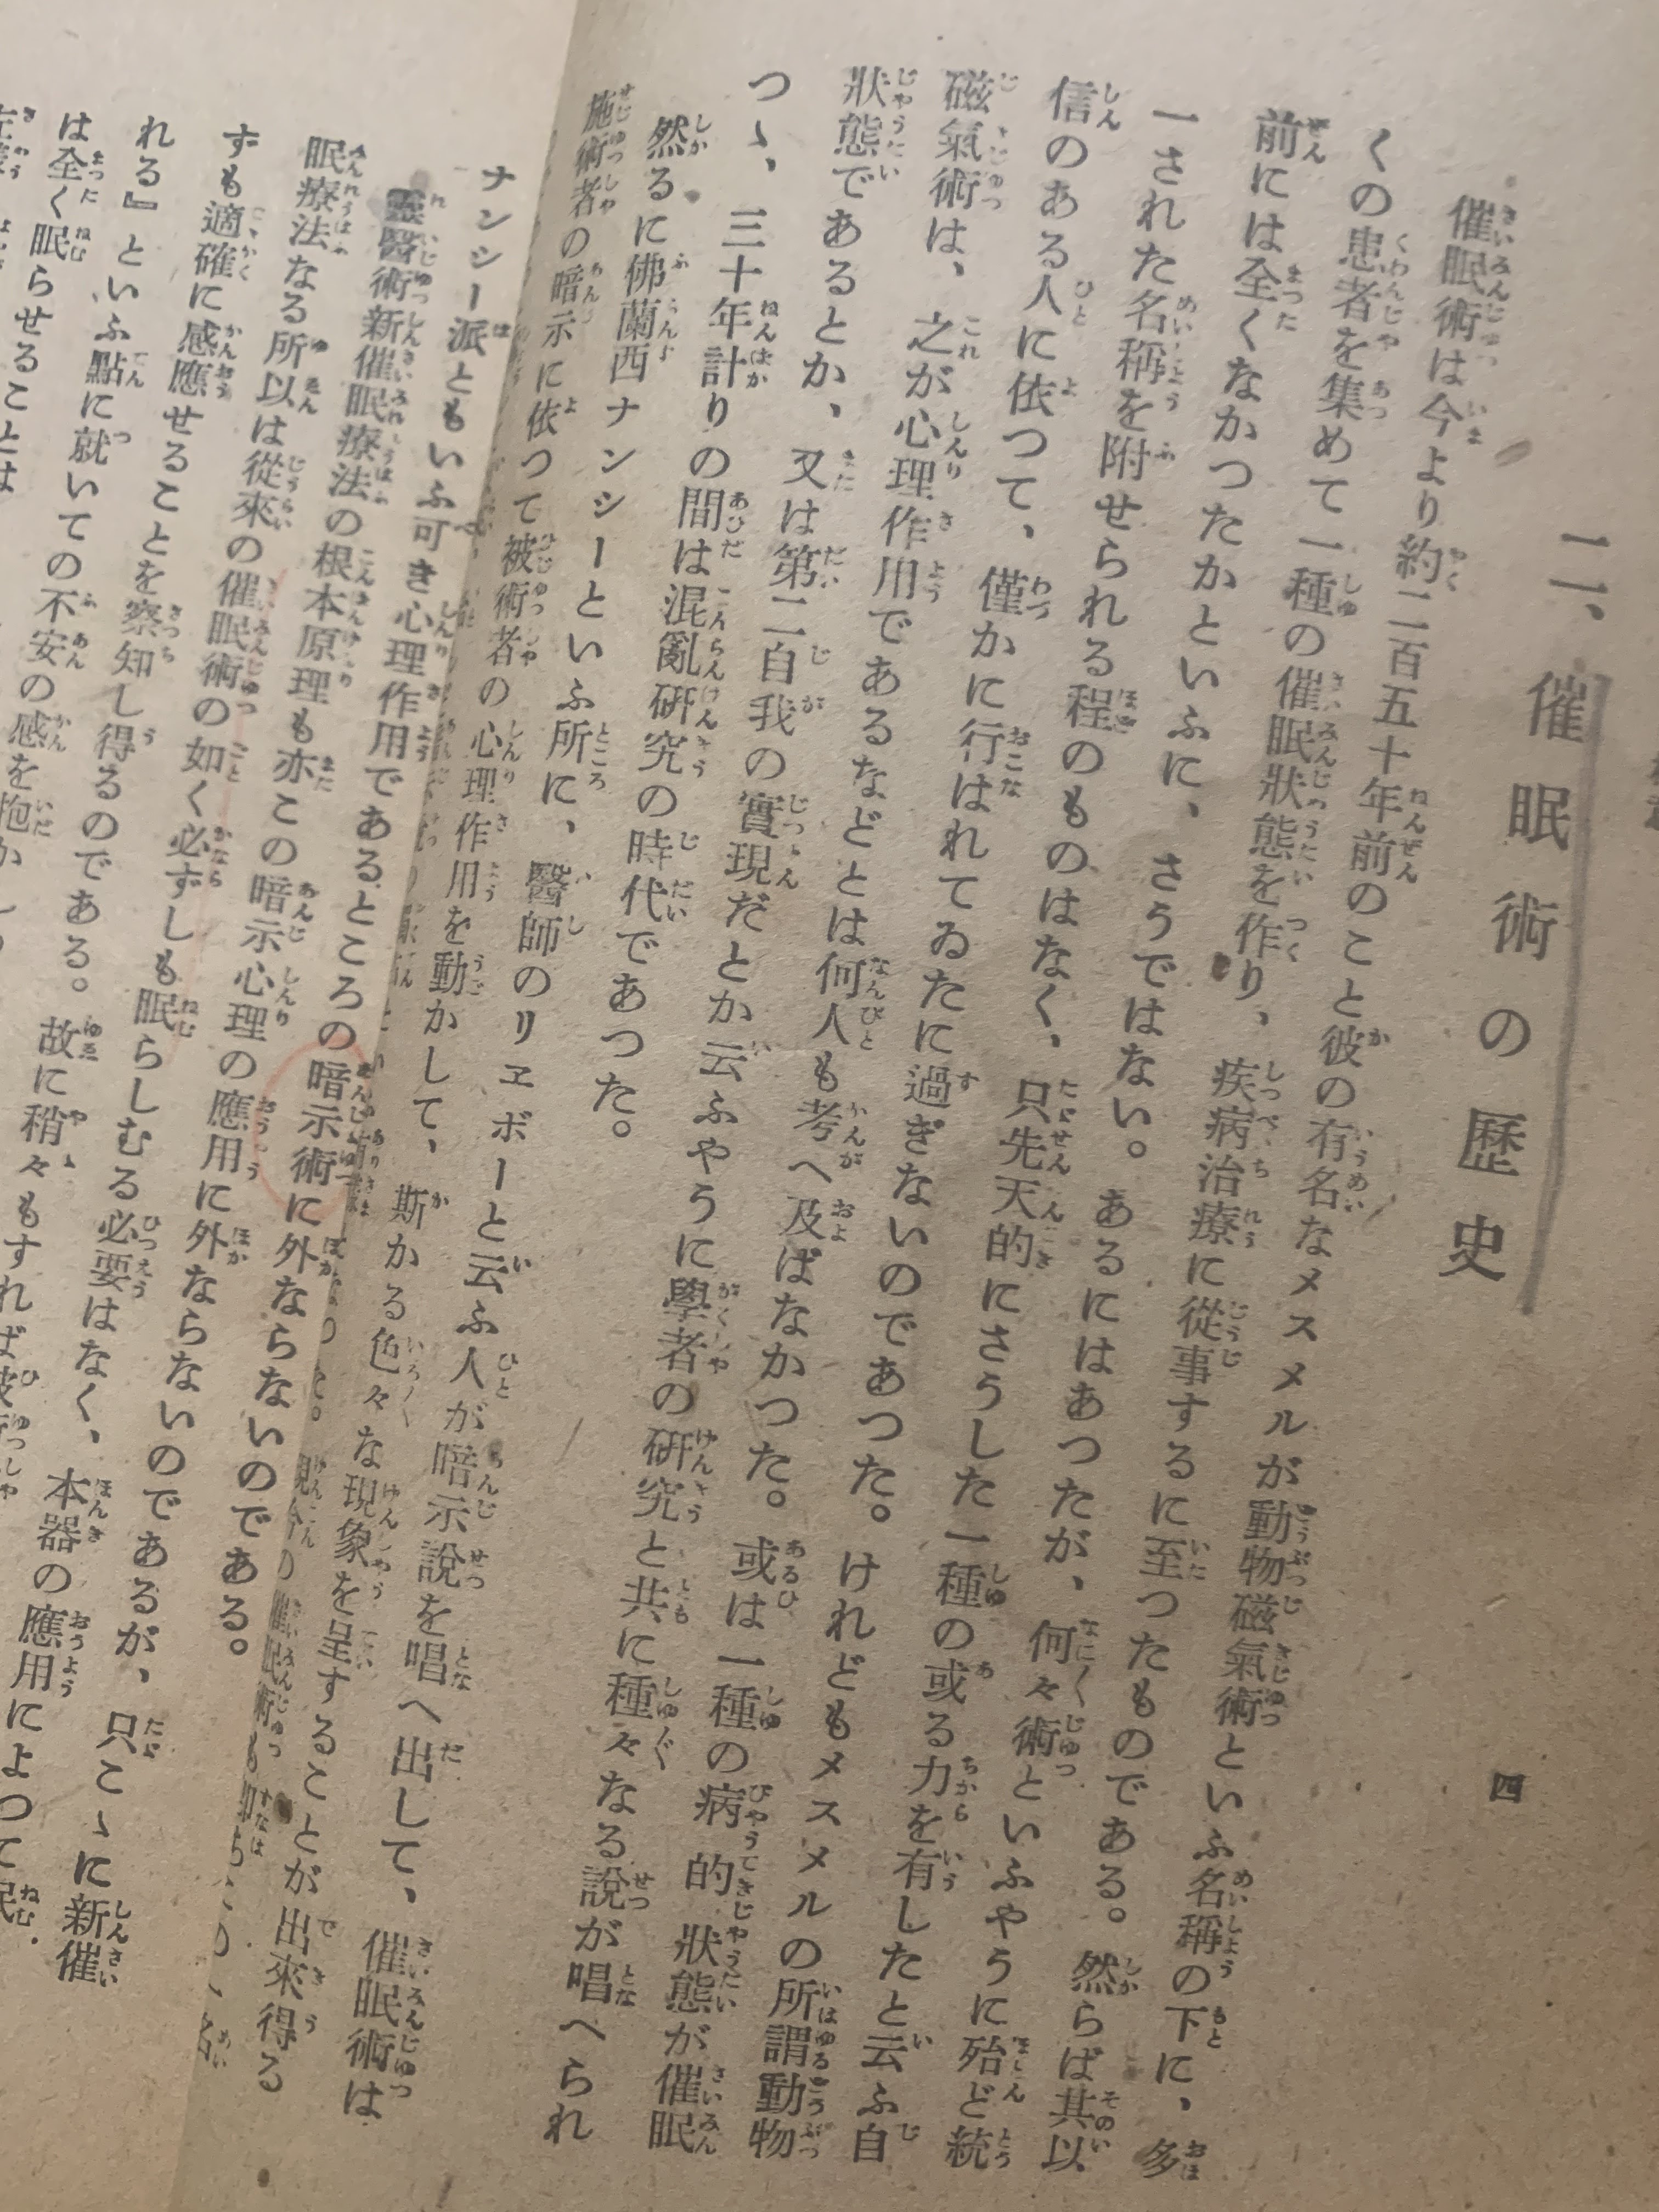 二、催眠術の歴史
四
催眠術は今より約二百五十年前のこと彼の有名なメスメルが動物磁氣術といふ名稱の下に、多
くの患者を集めて一種の催眠狀態を作り、疾病治療に從事するに至つたものである。然らば其以
前には全くなかつたかといふに、さうではない。あるにはあつたが、何々術といふやうに殆ど統
一された名稱を附せられる程のものはなく、只先天的にさうした一種の或る力を有したと云ふ自
信のある人に依つて、僅かに行はれてゐたに過ぎないのであつた。けれどもメスメルの所謂動物
磁氣術は、之が心理作用であるなどとは何人も考へ及ばなかつた。或は一種の病的狀態が催眠
狀態であるとか、又は第二自我の實現だとか云ふやうに學者の硏究と共に種々なる說が唱へられ
つゝ、三十年計りの間は混亂硏究の時代であつた。
然るに佛蘭西ナンシーといふ所に、醫師のリエボーと云ふ人が暗示說を唱へ出して、催眠術は
施術者の暗示に依つて被術者の心理作用を動かして、斯かる色々な現象を呈することが出來得る
ナンシー派ともいふ可き心理作用であるところの暗示術に外ならないのである。
靈醫術新催眠療法の根本原理も亦この暗示心理の應用に外ならないのであるが、只こゝに新催
眠療法なる所以は從來の催眠術の如く必ずしも眠らしむる必要はなく、本器の應用によつて眠
ずも適確に感應せることを察知し得るのである。故に稍々もすれば被
れる』といふ點に就いての不安の感を抱か
は全く眠らせることは